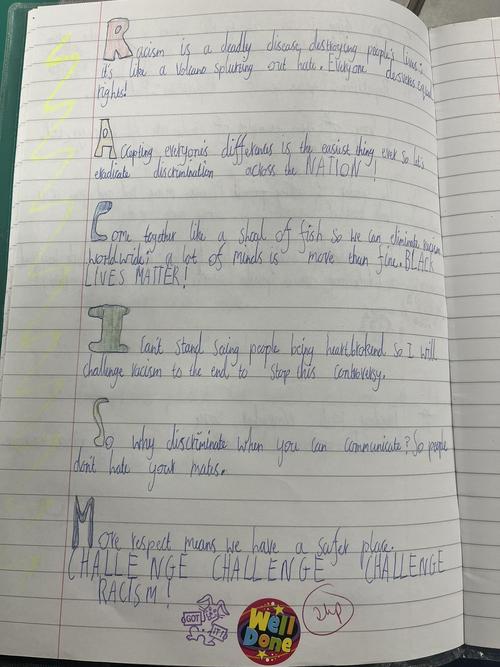 Racism is a deadly disease, destroying people's lives;
it's like a Volcano splurting out hate. Everyone deserves equal
rights!
Accepting everyone's differences is the easiest thing ever so let's
eradicate discrimination across the NATION!
Come together like a shoal of fish so we can eliminate racism
worldwide; a lot of minds is more than fine. BLACK
LIVES MATTER!
I can't stand seing people being heartbrokend so I will
challenge racism to the end, to stop this controversy.
So why discriminate when you can communicate? So people
don't hate your mates.
More respect means we have a safer place.
CHALLENGE CHALLENGE CHALLENGE
RACISM!
GOT IT!
Well
Done